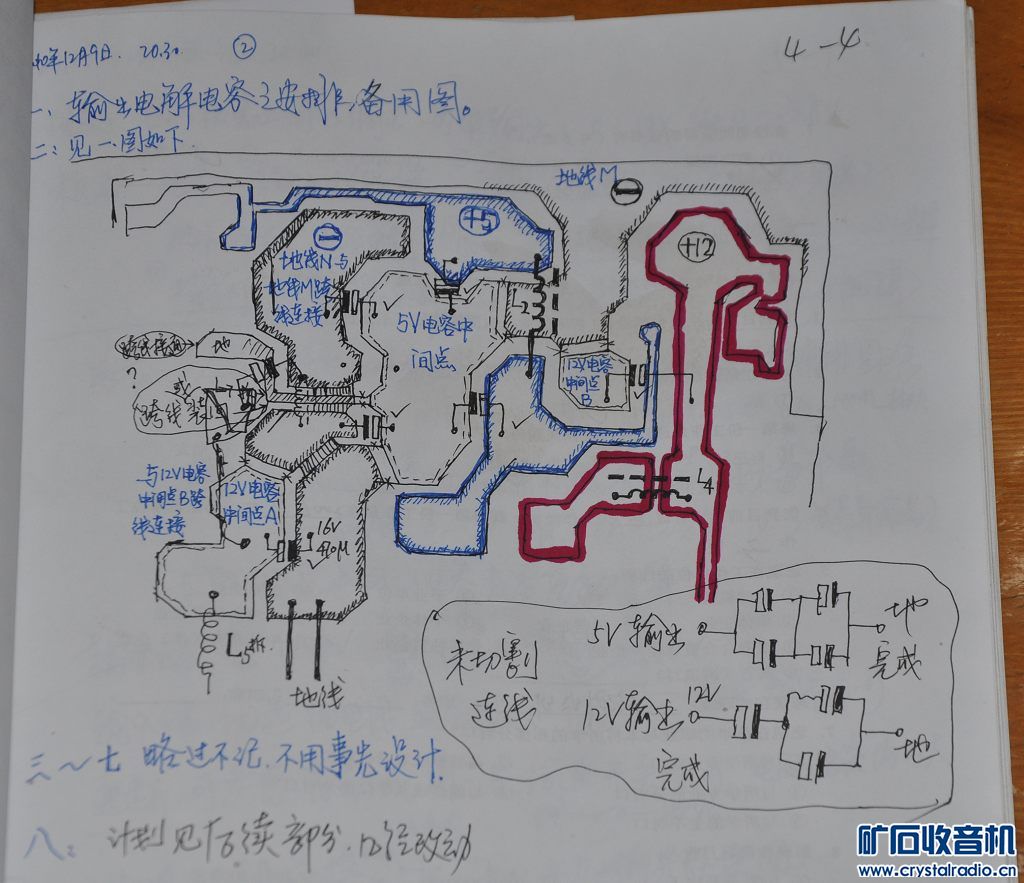 年12月9日. 20.30 ②
4-4
一、输出电解电容之安排,备用图。
二:见一图如下.
地线M ⊖
+5
+12
⊖
地线N与
地线M跨
线连接
5V电容中
间点
L2
12V电容
中间点
B
地
?
或
跨线装
与12V电容
中间点B跨
线连接
12V电容
中间点A
16V
470M
L4
L5拆
地线
未切割
连线
5V输出
地
完成
12V输出
12V
地
完成
三~七 略过不记,不用事先设计.
八: 计划见后续部分,已经改动
矿石收音机
www.crystalradio.cn